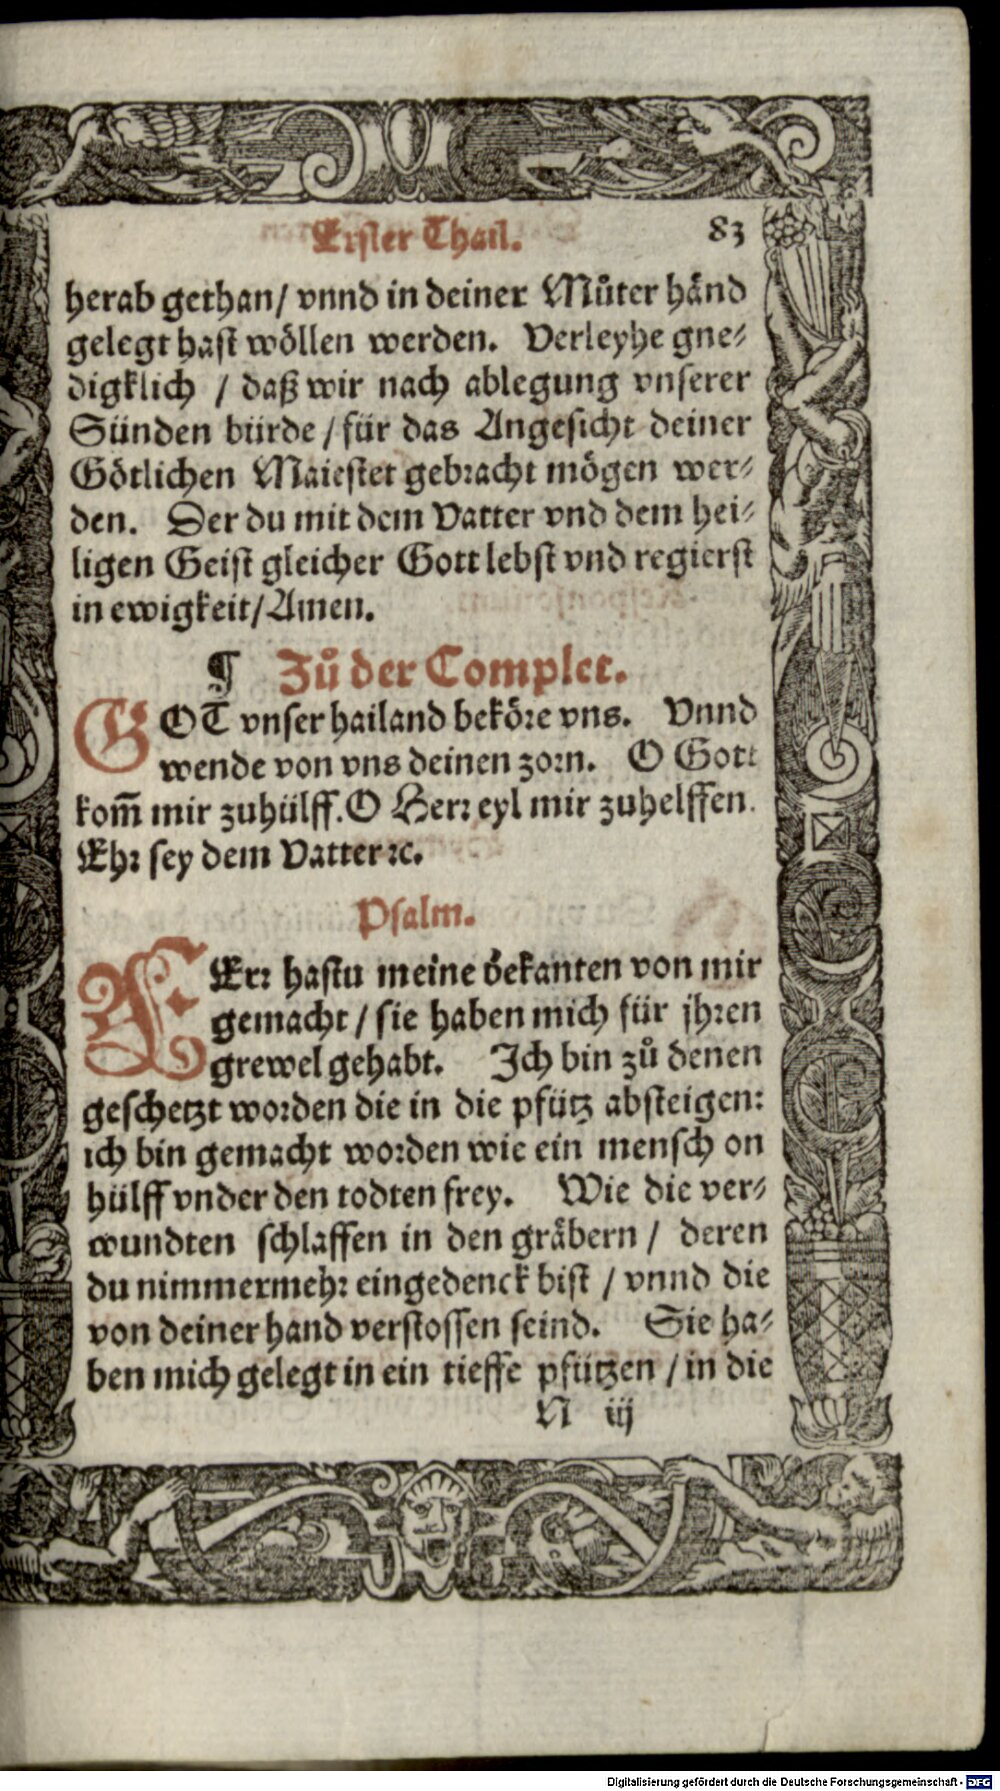 Erster Thail. 83
herab gethan/ vnnd in deiner Můter händ
gelegt hast wöllen werden. Verleyhe gne⸗
digklich / daß wir nach ablegung vnserer
Sünden bürde / für das Angesicht deiner
Götlichen Maiestet gebracht mögen wer⸗
den. Der du mit dem Vatter vnd dem hei⸗
ligen Geist gleicher Gott lebst vnd regierst
in ewigkeit/ Amen.
¶ Zů der Complet.
GOT vnser hailand beköre vns. Vnnd
wende von vns deinen zorn. O Gott
kom̃ mir zuhülff. O Herr eyl mir zuhelffen.
Ehr sey dem Vatter ꝛc.
Psalm.
HErr hastu meine bekanten von mir
gemacht / sie haben mich für jhren
grewel gehabt. Ich bin zů denen
geschetzt worden die in die pfütz absteigen:
ich bin gemacht worden wie ein mensch on
hülff vnder den todten frey. Wie die ver⸗
wundten schlaffen in den gräbern / deren
du nimmermehr eingedenck bist / vnnd die
von deiner hand verstossen seind. Sie ha⸗
ben mich gelegt in ein tieffe pfützen / in die
N iij
Digitalisierung gefördert durch die Deutsche Forschungsgemeinschaft - DFG